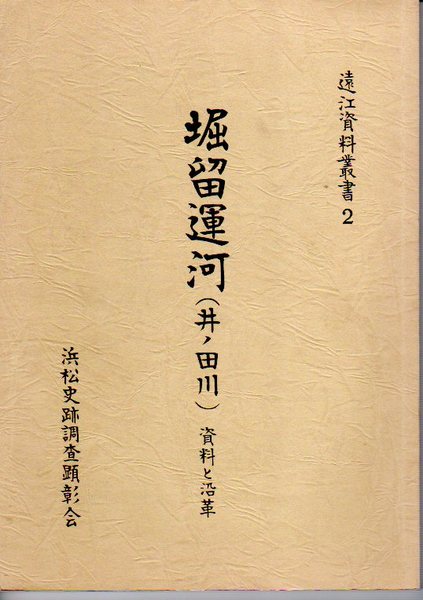 遠江資料叢書2
堀留運河(井ノ田川)資料と沿革
浜松史跡調査顕彰会